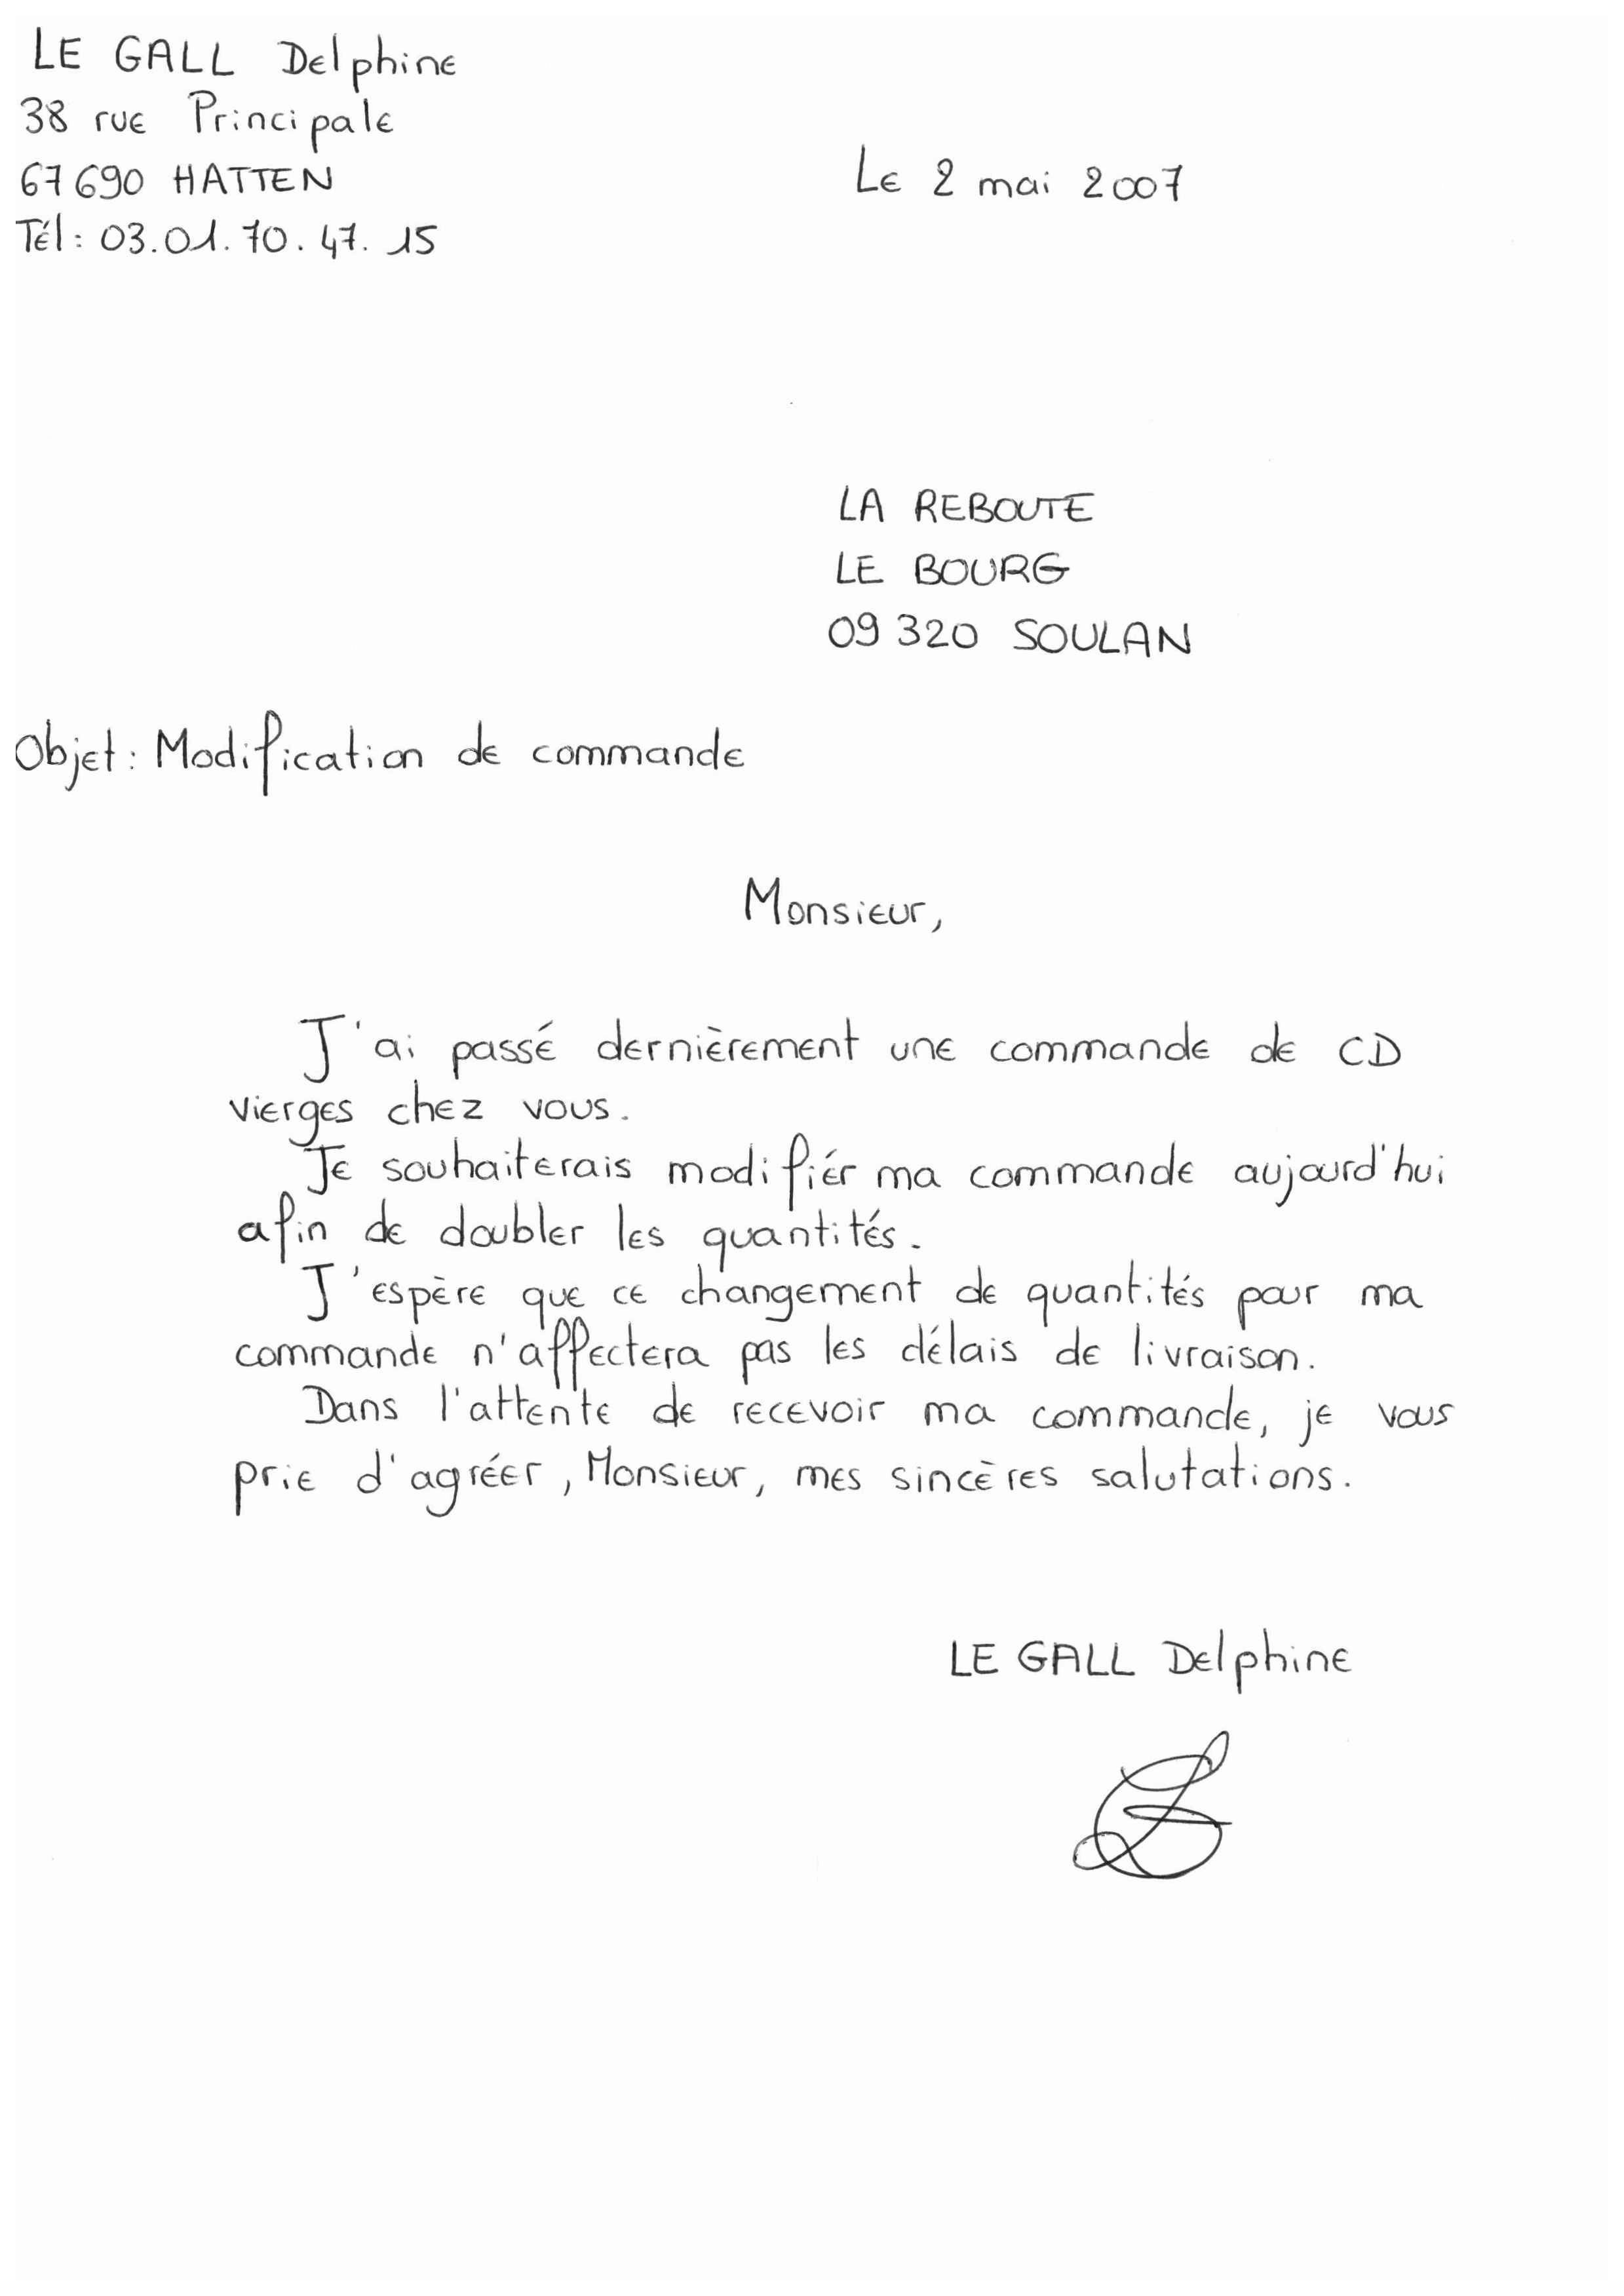 LE GALL Delphine
38 rue Principale
67690 HATTEN
Tél : 03.01.70.47.15
Le 2 mai 2007
LA REBOUTE
LE BOURG
09320 SOULAN
Objet : Modification de commande
Monsieur,
J'ai passé dernièrement une commande de CD
vierges chez vous.
Je souhaiterais modifiér ma commande aujourd'hui
afin de doubler les quantités.
J'espère que ce changement de quantités pour ma
commande n'affectera pas les délais de livraison.
Dans l'attente de recevoir ma commande, je vous
prie d'agréer, Monsieur, mes sincères salutations.
LE GALL Delphine